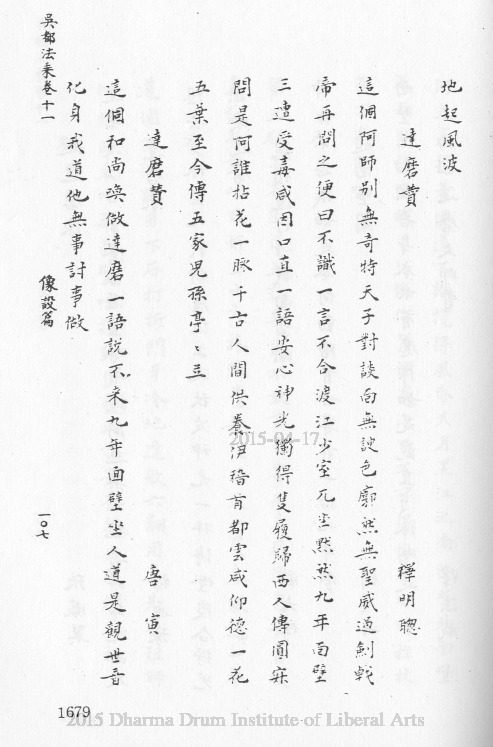 地起風波
達磨贊　釋明聰
這個阿師別無奇特天子對談面無諛色廓然無聖威過劍戟
帝再問之便曰不識一言不合渡江少室兀坐默默九年面壁
三遭受毒咸因口直一語安心神光獨得隻履歸西又傳圓寂
問是阿誰拈花一脉千古人間供養伊稽首都雲咸仰德一花
五葉至今傳五家兒孫亭〻立
達磨贊　唐寅
這個和尚喚做達磨一語說不來九年面壁坐人道是觀世音
化身我道他無事討事做
吳都法乘卷十一
像設篇
一〇七
1679
2015-04-17
2015 Dharma Drum Institute of Liberal Arts